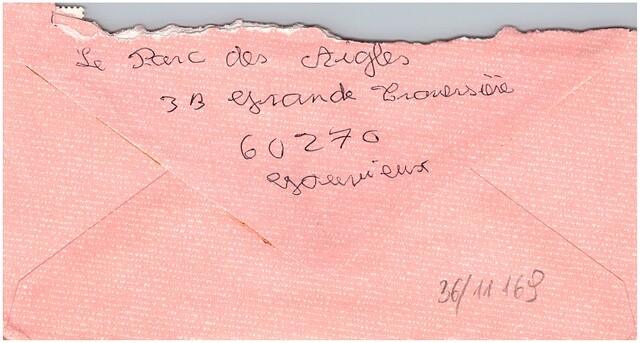 Le Parc des Aigles
3B Grande Traversière
60270
Gouvieux
36/11169